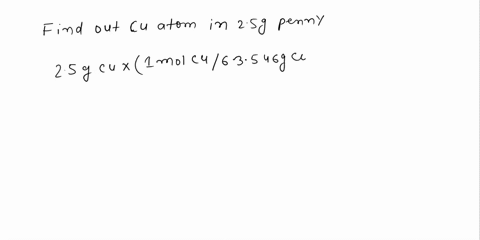 Find out Cu atom in 2.5g penny
2.5 g cu x (1 mol Cu/63.546g cu